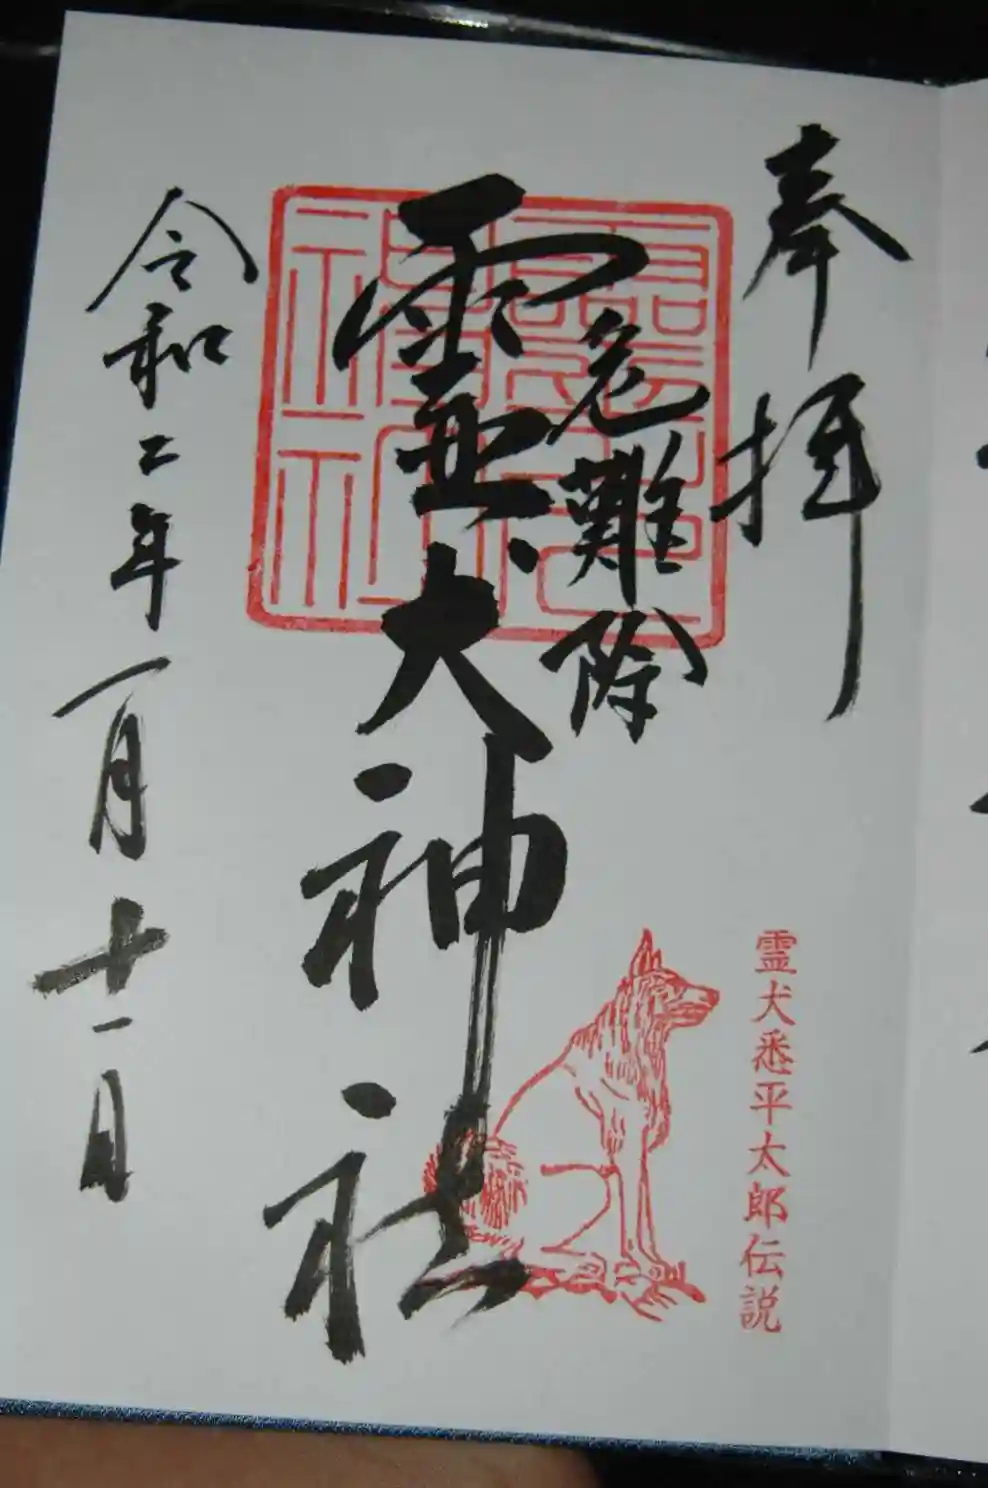 奉拝
危難除
霊犬神社
令和二年一月十一日
霊犬神社
霊犬悉平太郎伝説